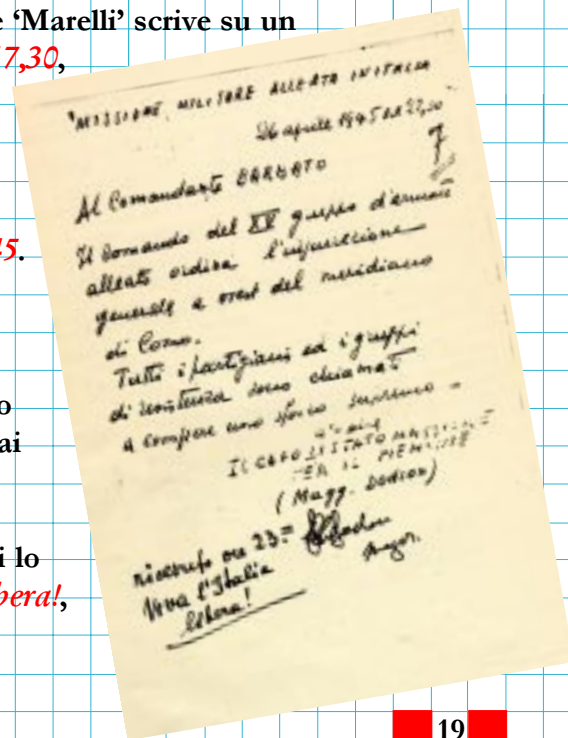 e ‘Marelli’ scrive su un
7,30,
45.
o
ai
i lo
bera!,
"MISSIONE MILITARE ALLEATA IN ITALIA
26 aprile 1945 ore
7
Al Comandante BARBATO
Il Comando del XV gruppo d'armate
alleato ordina l'insurrezione
generale a ovest del meridiano
di Como.
Tutti i partigiani ed i gruppi
di resistenza sono chiamati
a compiere uno sforzo supremo =
IL CAPO DI STATO MAGGIORE
PER IL PIEMONTE
(Magg. Dodson)
ricevuto ore 23=
Major.
Viva l'Italia
libera!
19